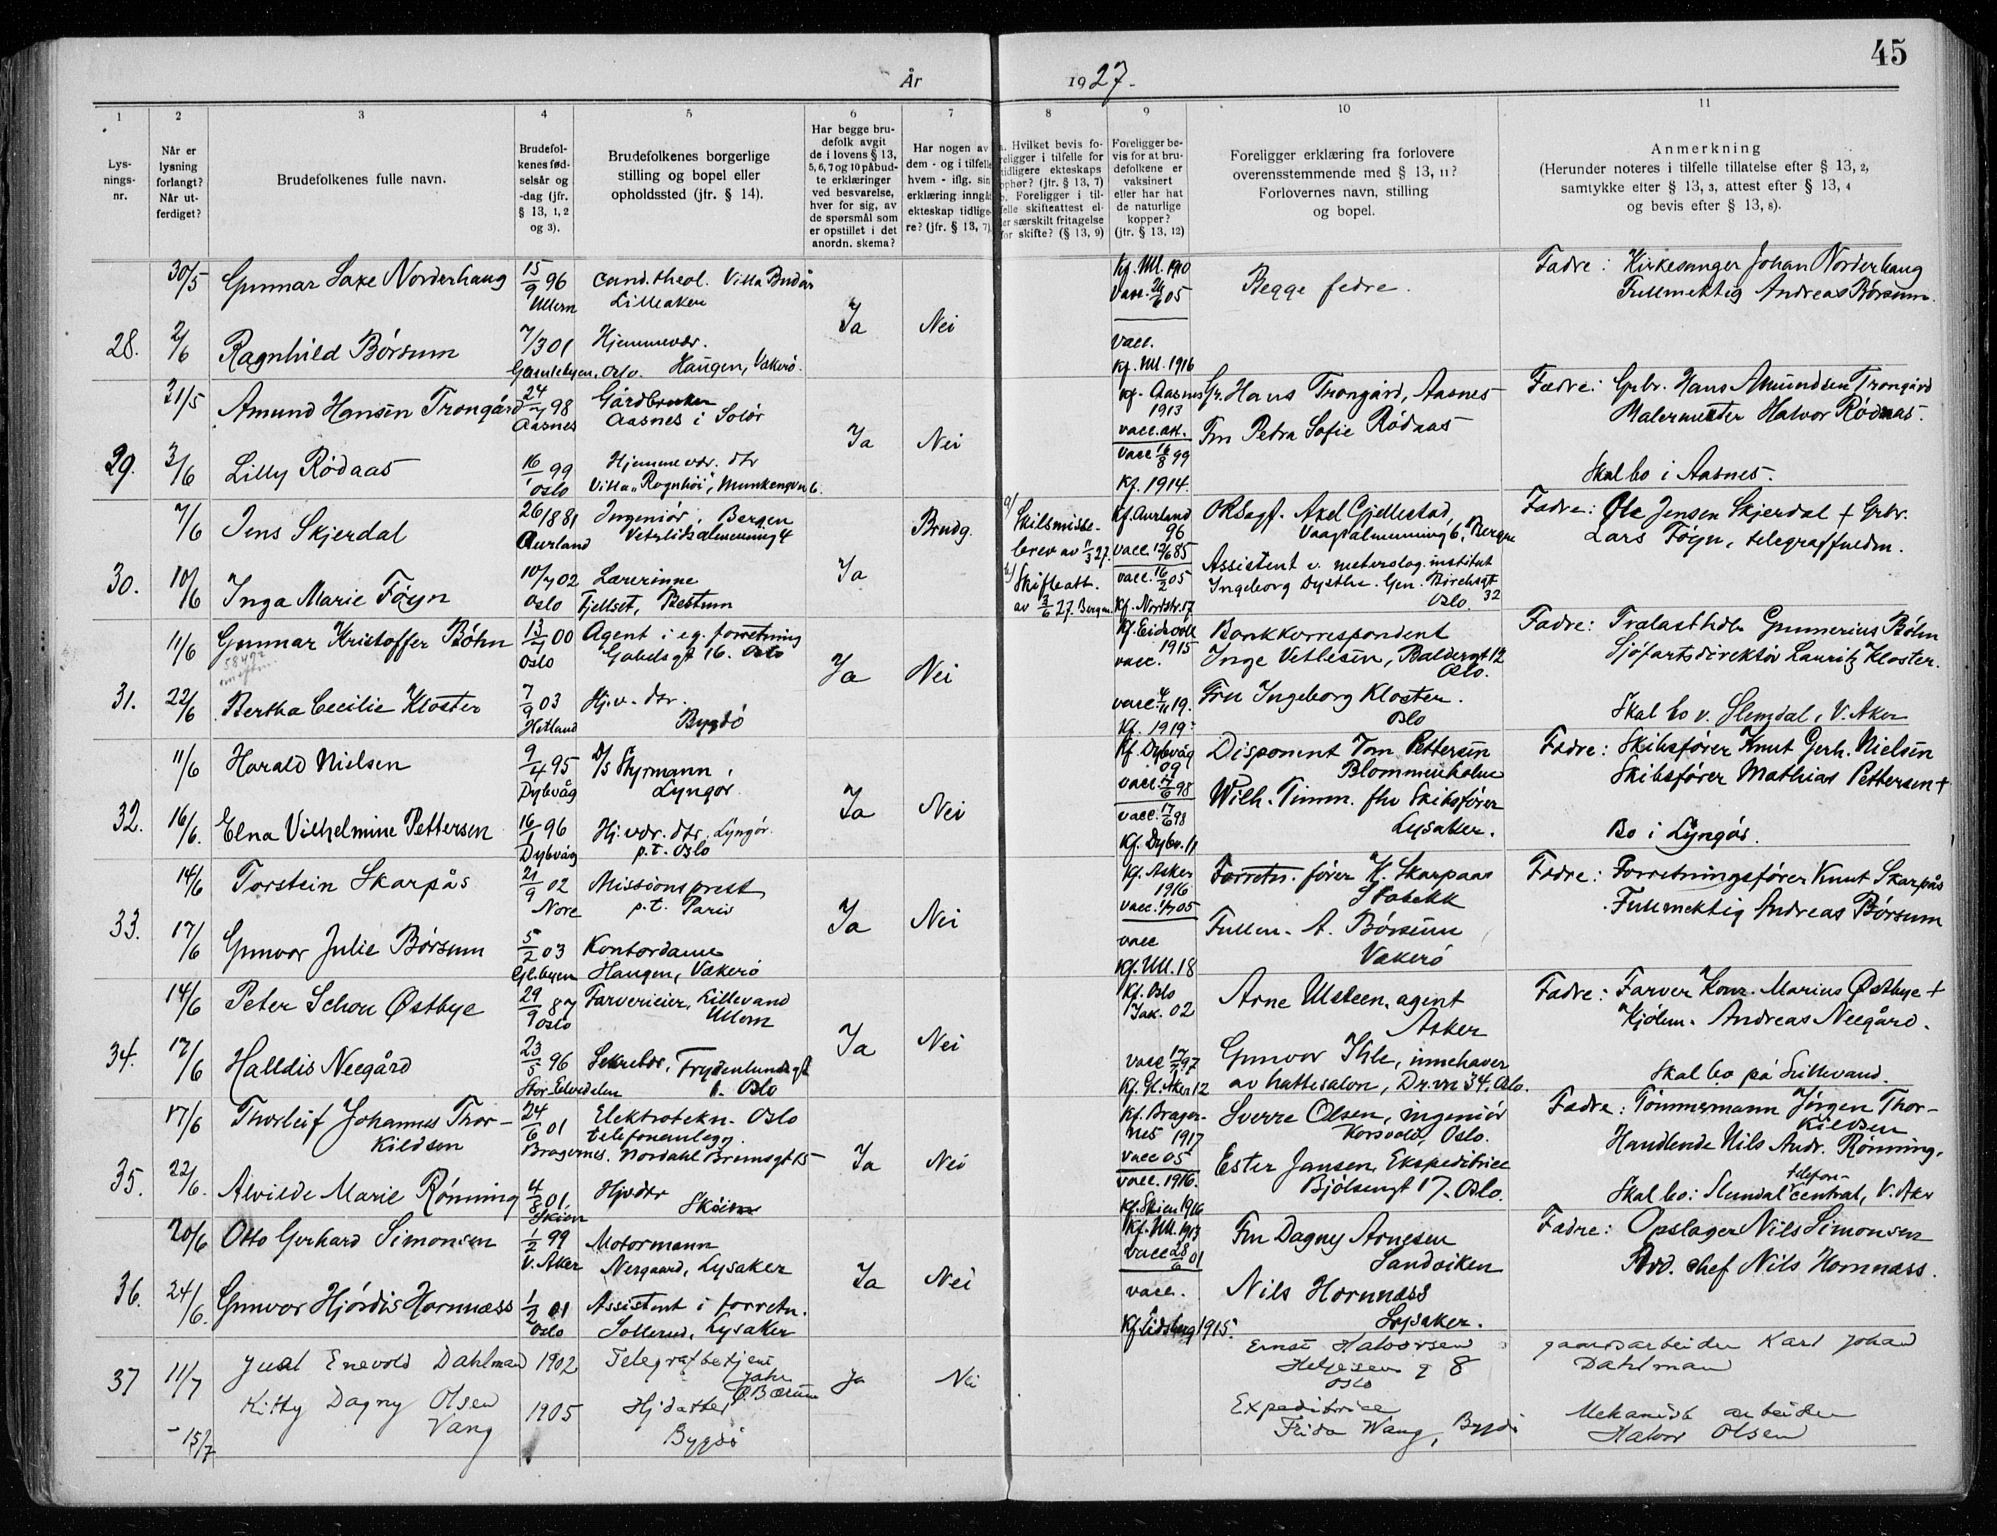 45
År 1927.
1 2 3 4 5 6 7 8 9 10 11
Lys-
nings-
nr.
Når er
lysning
forlangt?
Når ut-
ferdiget?
Brudefolkenes fulle navn.
Brudefol-
kenes fød-
selsår og
-dag (jfr.
§ 13, 1, 2
og 3).
Brudefolkenes borgerlige
stilling og bopel eller
opholdssted (jfr. § 14).
Har begge bru-
defolk avgit
de i lovens § 13,
5, 6, 7 og 10 påbud-
te erklæringer
ved besvarelse,
hver for sig, av
de spørsmål som
er opstillet i det
anordn. skema?
Har nogen av
dem - og i tilfelle
hvem - iflg. sin
erklæring inngå
ekteskap tidlige-
re? (jfr. § 13, 7)
a. Hvilket bevis fo-
religger i tilfelle for
tidligere ekteskaps
ophør? (jfr. § 13, 7)
b. Foreligger i til-
felle skifteattest el-
ler særskilt fritagelse
for skifte? (§ 13, 9)
Foreligger be-
vis for at bru-
defolkene er
vaksinert
eller har hat
de naturlige
kopper?
(jfr. § 13, 12)
Foreligger erklæring fra forlovere
overensstemmende med § 13, 11?
Forlovernes navn, stilling
og bopel.
Anmerkning
(Herunder noteres i tilfelle tillatelse efter § 13, 2,
samtykke efter § 13, 3, attest efter § 13, 4
og bevis efter § 13, 8).
28.
30/5
2/6
Gunnar Saxe Norderhaug
15/9 96
Ullern
cand. theol. Villa
Lilleaker
Ragnhild Børsum
7/3 01
Gamlebyen, Oslo.
Hjemmevær.
Haugen, Vækerø.
Ja
Nei
Kf. Ull. 1910
Vacc. 05
vacc.
Kf. Ull. 1916
Begge fedre.
Fædre: Kirkesanger Johan Norderhaug
Fullmektig Andreas Børsum.
29.
31/5
3/6
Amund Hansen Trongård
24/7 98
Aasnes
Gårdbruker
Aasnes i Solør
Lilly Rødaas
16/1 99
Oslo
Hjemmevær. dtr
Villa "Ragnhöi", Munkengvn 6.
Ja
Nei
Kf. Aasnes
1913
vacc. att.
vacc. 16/8 99
Kf. 1914.
Gr. Hans Trongård, Aasnes
Fru Petra Sofie Rødaas
Fædre: Grbr. Hans Amundsen Trongård
Malermester Halvor Rødaas.
Skal bo i Aasnes.
30.
7/6
10/6
Jens Skjerdal
26/1 881
Aurland
Ingeniør, Bergen
Vetrlidsalmenning 4
Inga Marie Føyn
10/7 02
Oslo
Lærerinne
Fjellset, Bestum
Ja
Brudg.
a/ Skilsmisse-
brev av 11/3 27.
b/ Skifteatt.
av 3/6 27. Bergen.
Kf. Aurland
96
vacc. 12/6 85
vacc. 16/2 05
Kf. Nordstr. 17
ORSagf. Axel Gjellestad,
Vaagsalmenning 6, Bergen
Assistent v. meterolog. institut
Ingeborg Dysthe. Gen. Birchsgt
32
Oslo.
Fædre: Ole Jensen Skjerdal + Grbr.
Lars Føyn, telegraffuldm.
31.
11/6
22/6
Gunnar Kristoffer Bøhn
13/7 00
Oslo
Agent i eg. forretning
Gabelsgt 16. Oslo
Bertha Cecilie Kloster
7/9 03
Hetland
Hj.v. dtr.
Bygdö
Ja
Nei
Kf. Eidsvoll
1915
vacc.
vacc 4/11 19.
Kf. 1919.
Bankkorrespondent
Inge Vetlesen, Baldersgt 12
Oslo.
Fru Ingeborg Kloster.
Oslo
Fædre: Trælasthdlr Gunnerius Bøhn
Sjøfartsdirektør Lauritz Kloster.
Skal bo v. Slemdal, V. Aker
32.
11/6
16/6.
Harald Nielsen
9/4 95
Dybvåg
D/S Styrmann,
Lyngør.
Elna Vilhelmine Pettersen
16/1 96
Dybvåg
Hj. vær. dtr. Lyngör.
p.t. Oslo
Ja
Nei
Kf. Dybvåg
09
vacc. 98
vacc. 17/6 98
Kf. Dybv. 11
Disponent Tom Pettersen
Blommenholm
Wilh. Timm. fhv Skibsfører
Lysaker.
Fædre: Skibsfører Knut Gerh. Nielsen
Skibsfører Mathias Pettersen +
Bo i Lyngør.
33.
14/6
17/6
Torstein Skarpås
21/9 02
Nore
Missionsprest
p.t. Paris
Gunvor Julie Børsum
5/2 03
Gl.byen
Kontordame
Haugen, Vækerö
Ja
Nei
Kf. Asker
1916
vacc. 1/7 05
vacc
Kf. Ull. 18
Forretn. fører K. Skarpaas
Stabekk
Fullm. A. Børsum
Vækerö
Fædre: Forretningsfører Knut Skarpås
Fullmektig Andreas Børsum
34.
14/6
17/6
Peter Schou Østbye
29/9 87
Oslo
Farverieier, Lillevand
Ullern
Halldis Neegård
23/5 96
Stor Elvedalen
Sekretær, Frydenlundsgt
Oslo
Ja
Nei
Kf. Oslo
Jak. 02
vacc 97
Kf. Gl. Aker 12
Arne Ulsteen, agent
Asker
Gunvor Ihle, innehaver
av hattesalon, Dr. vn 34. Oslo.
Fædre: Farver Konr. Marius Østbye +
Kjøbm. Andreas Neegård.
Skal bo på Lillevand.
35.
17/6
22/6.
Thorleif Johannes Thor-
kildsen
24/6 01
Bragernes.
Elektrotekn. Oslo
telefonanlegg.
Nordahl Brunsgt 15
Alvilde Marie Rønning
4/8 01.
Skien
Hjvdtr
Skøien
Ja
Nei
Kf. Brager-
nes 1917
vacc 05
vacc. 1916.
Kf. Skien 1916
Sverre Olsen, ingeniør
Korsvold, Oslo.
Ester Jansen, Ekspeditrice
Bjølsengt 17. Oslo.
Fædre: Tömmermann Jørgen Thor-
kildsen
Handlende Nils Andr. Rønning.
Skal bo: Slemdal telefon-
central, V. Aker
36.
20/6
24/6.
Otto Gerhard Simonsen
1/2 99
V. Aker
Motormann
Nergaard, Lysaker
Gunvor Hjördis Hornnæss
1/2 01
Oslo
Assistent i forretn.
Sollerud, Lysaker
Ja
Nei
Kf. Ull. 1913
vacc 28/6 01
vacc.
Kf. Eidsberg 1915.
Fru Dagny Arnesen
Sandviken
Nils Hornnæss
Lysaker.
Fædre: Opslager Nils Simonsen
Avd. chef Nils Hornnæss.
37
11/7
- 15/7
Juel Enevold Dahlman
1902
Telegrafbetjent
Jahr
Ø. Bærum
Kitty Dagny Olsen
Vang
1905
Hj datter
Bygdö
Ja
Nei
Ernst Halvorsen
Helgesens g 8
Oslo
Expeditrice
Frida Wang, Bygdö
gaardsarbeider Karl Johan
Dahlman
Mekanisk arbeider
Halvor Olsen